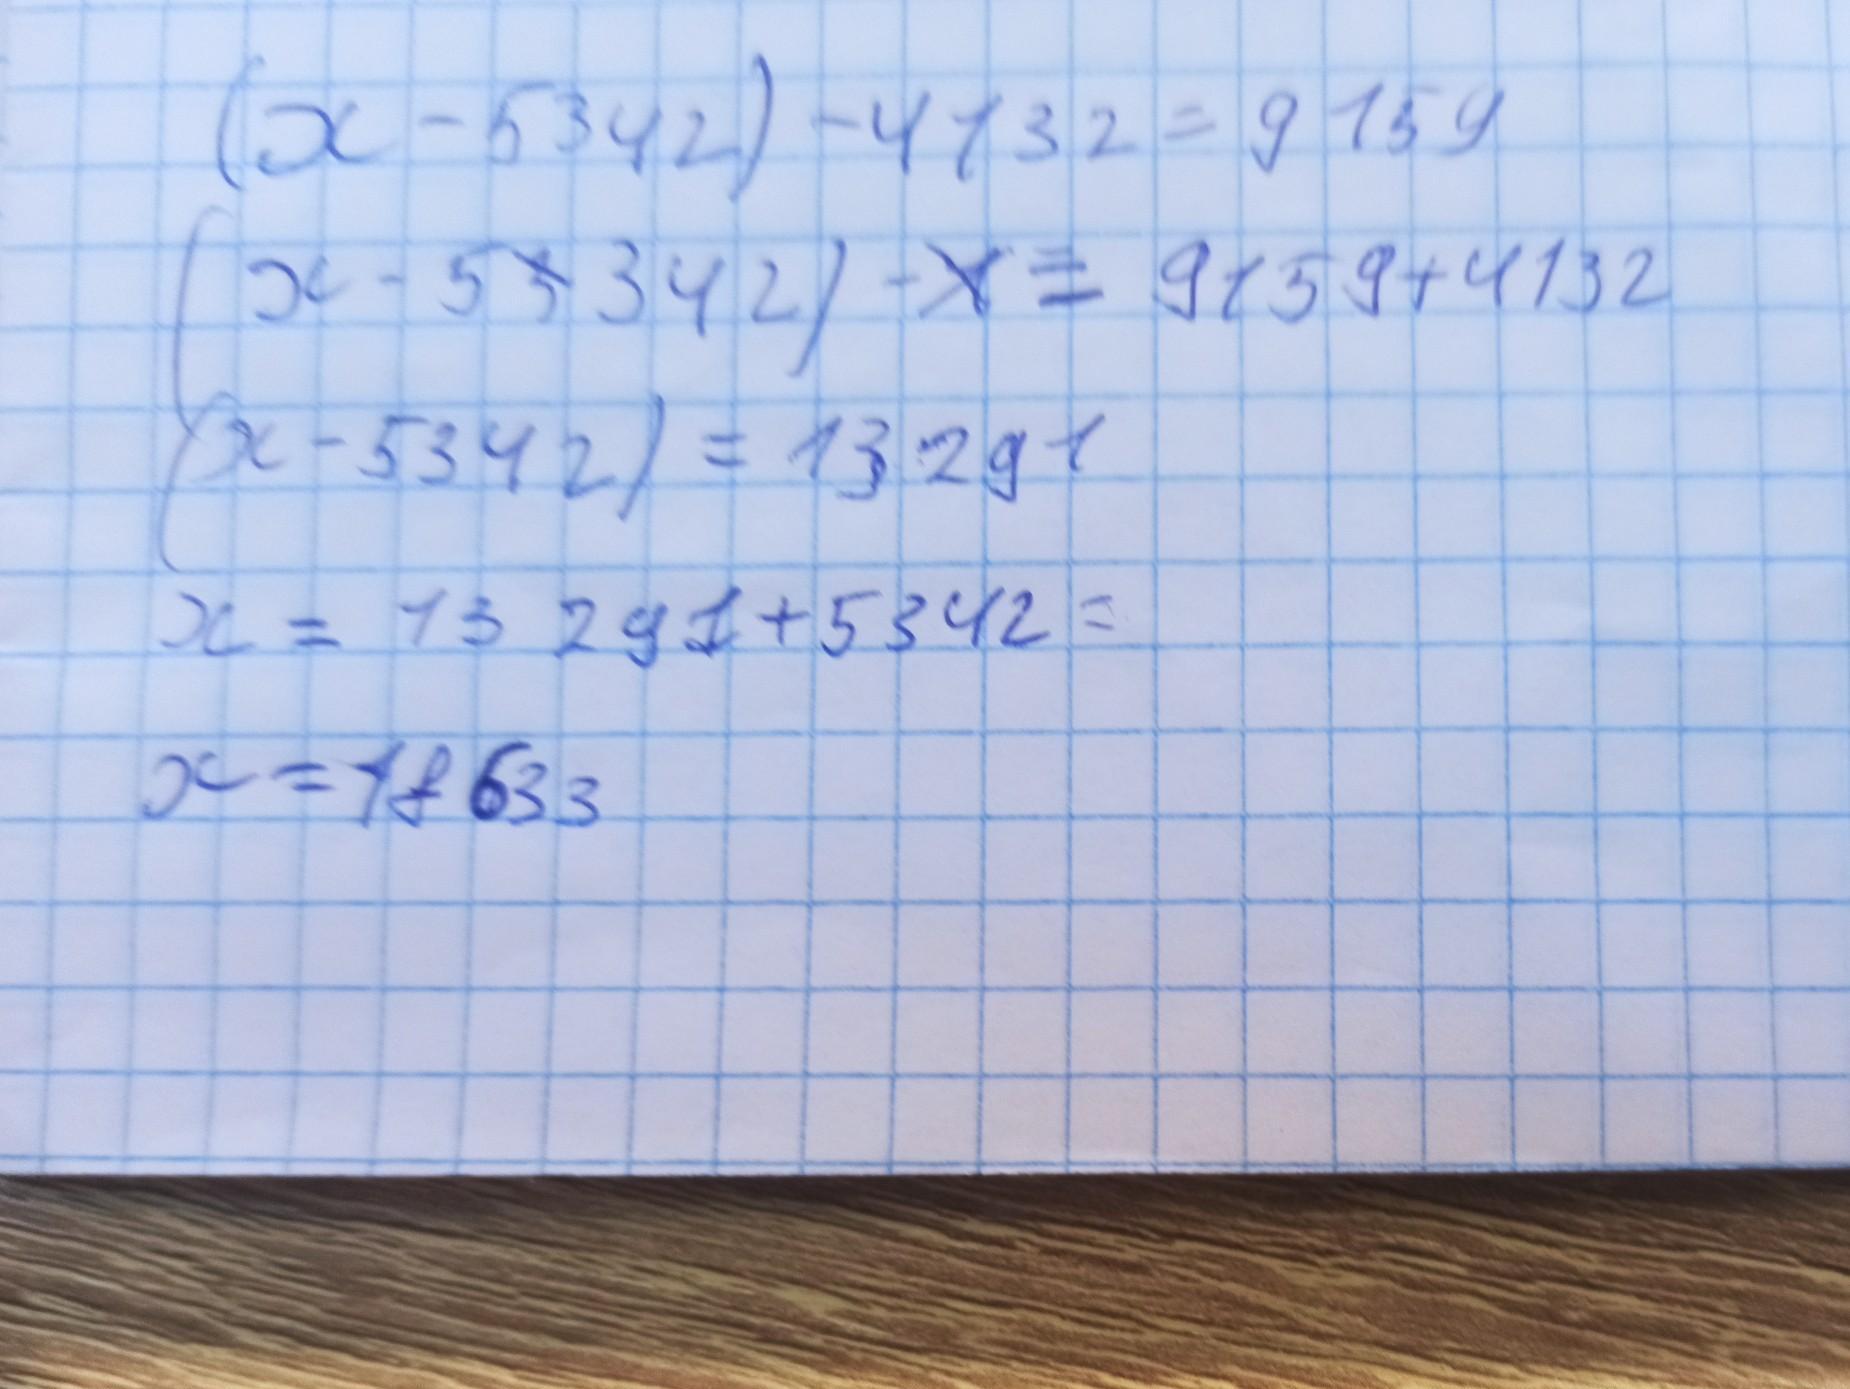 (x - 5342) - 4132 = 9159
(x - 5342) = 9159 + 4132
(x - 5342) = 13291
x = 13 291 + 5342 =
x = 18633